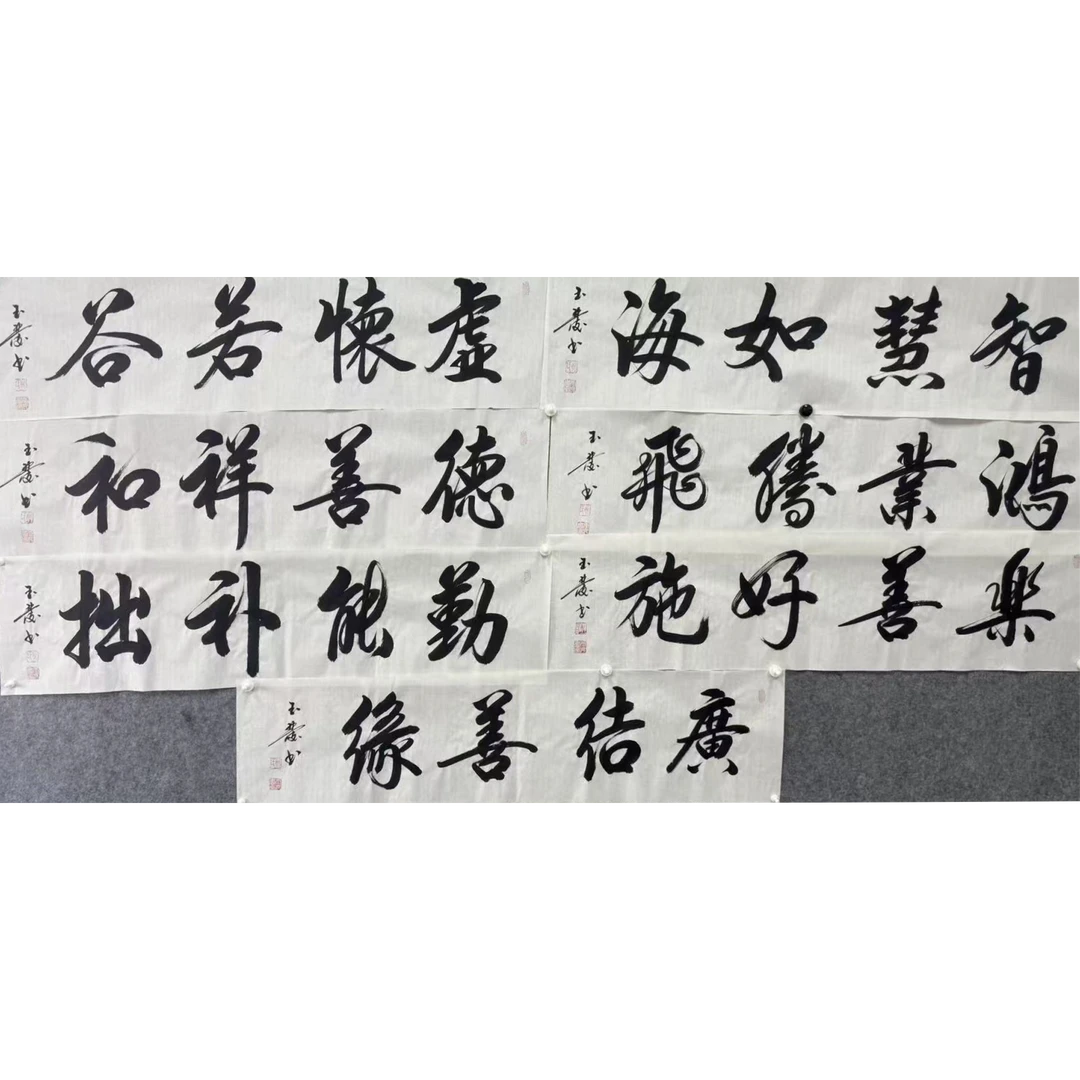 智慧如海
玉书
虚懷若谷
玉书
鴻業騰飛
玉书
德善祥和
玉书
樂善好施
玉书
勤能补拙
玉书
廣结善缘
玉书